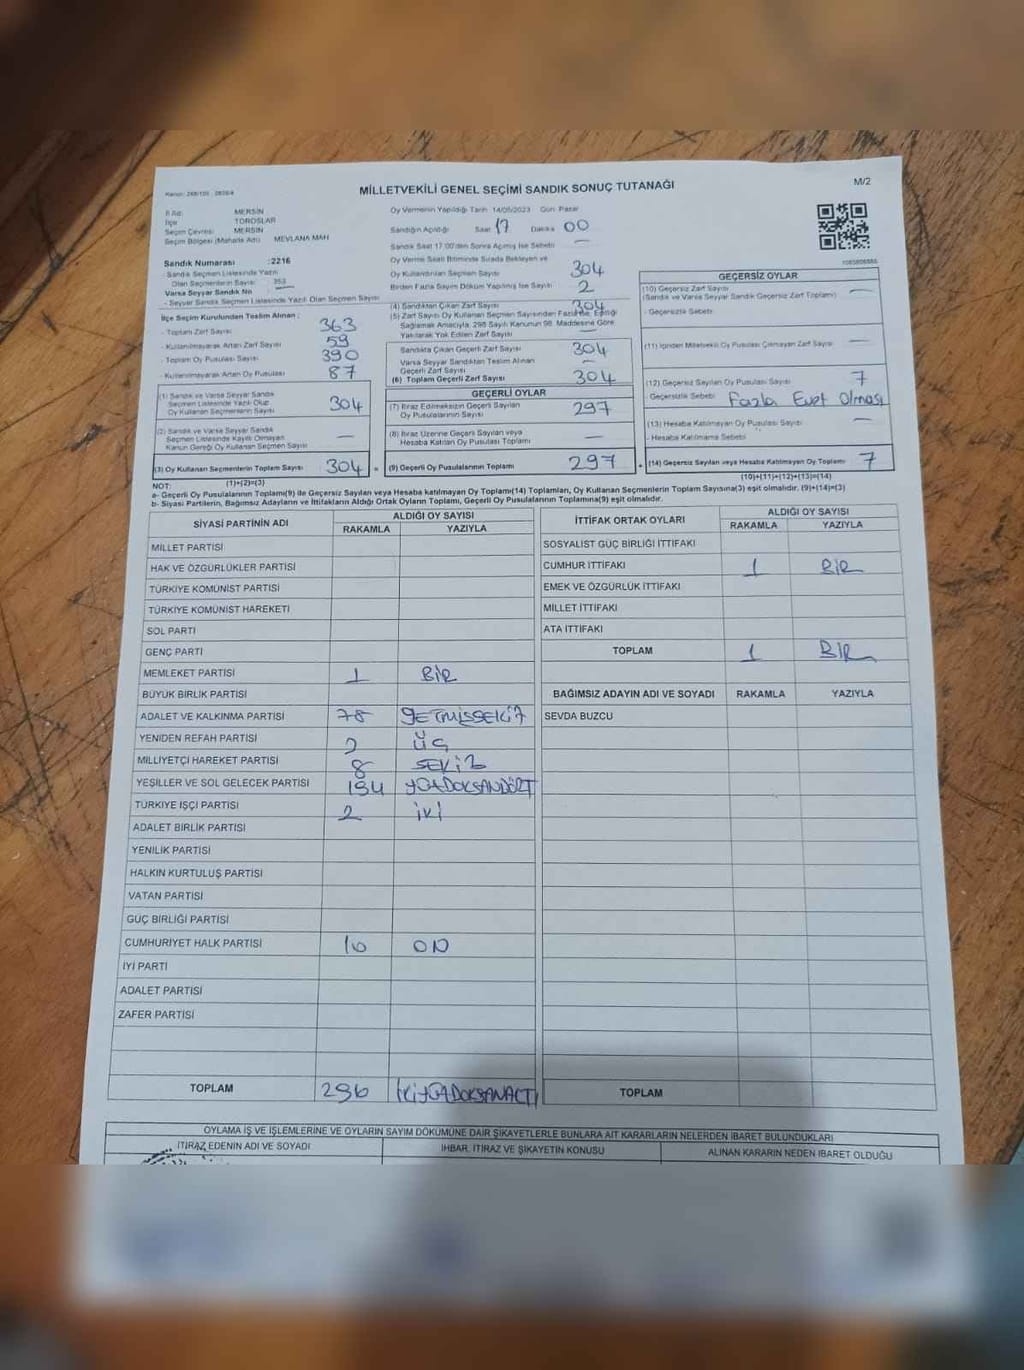 MİLLETVEKİLİ GENEL SEÇİMİ SANDIK SONUÇ TUTANAĞI
M/2
İl Adı: MERSİN
İlçe TOROSLAR
Seçim Çevresi MERSİN
Seçim Bölgesi (Mahalle Adı) MEVLANA MAH
Sandık Numarası :2216
- Sandık Seçmen Listesinde Yazılı
Olan Seçmenlerin Sayısı : 353
Varsa Seyyar Sandık No
- Seyyar Sandık Seçmen Listesinde Yazılı Olan Seçmen Sayısı
İlçe Seçim Kurulundan Teslim Alınan :
- Toplam Zarf Sayısı 363
- Kullanılmayarak Artan Zarf Sayısı 59
- Toplam Oy Pusulası Sayısı 390
- Kullanılmayarak Artan Oy Pusulası 87
(1) Sandık ve Varsa Seyyar Sandık
Seçmen Listesinde Yazılı Olup
Oy Kullanan Seçmenlerin Sayısı 304
(2) Sandık ve Varsa Seyyar Sandık
Seçmen Listesinde Kayıtlı Olmayan
Kanun Gereği Oy Kullanan Seçmen Sayısı —
(3) Oy Kullanan Seçmenlerin Toplam Sayısı 304
(1)+(2)=(3)
Oy Vermenin Yapıldığı Tarih 14/05/2023 Gün Pazar
Sandığın Açıldığı Saat 17 Dakika 00
Sandık Saat 17:00'den Sonra Açılmış İse Sebebi —
Oy Verme Saati Bitiminde Sırada Bekleyen ve
Oy Kullandırılan Seçmen Sayısı 304
Birden Fazla Sayım Döküm Yapılmış İse Sayısı 2
(4) Sandıktan Çıkan Zarf Sayısı 304
(5) Zarf Sayısı Oy Kullanan Seçmen Sayısından Fazla İse, Eşitliği
Sağlamak Amacıyla, 298 Sayılı Kanunun 98. Maddesine Göre
Yakılarak Yok Edilen Zarf Sayısı —
Sandıkta Çıkan Geçerli Zarf Sayısı 304
Varsa Seyyar Sandıktan Teslim Alınan
Geçerli Zarf Sayısı —
(6) Toplam Geçerli Zarf Sayısı 304
GEÇERLİ OYLAR
(7) İtiraz Edilmeksizin Geçerli Sayılan
Oy Pusulalarının Sayısı 297
(8) İtiraz Üzerine Geçerli Sayılan veya
Hesaba Katılan Oy Pusulası Toplamı —
(9) Geçerli Oy Pusulalarının Toplamı 297
GEÇERSİZ OYLAR
(10) Geçersiz Zarf Sayısı —
(Sandık ve Varsa Seyyar Sandık Geçersiz Zarf Toplamı)
- Geçersizlik Sebebi
(11) İçinden Milletvekili Oy Pusulası Çıkmayan Zarf Sayısı —
(12) Geçersiz Sayılan Oy Pusulası Sayısı 7
- Geçersizlik Sebebi Fazla Evet Olması
(13) Hesaba Katılmayan Oy Pusulası Sayısı —
- Hesaba Katılmama Sebebi
(14) Geçersiz Sayılan veya Hesaba Katılmayan Oy Toplamı 7
(10)+(11)+(12)+(13)=(14)
NOT:
a- Geçerli Oy Pusulalarının Toplamı(9) ile Geçersiz Sayılan veya Hesaba katılmayan Oy Toplamı(14) Toplamları, Oy Kullanan Seçmenlerin Toplam Sayısına(3) eşit olmalıdır. (9)+(14)=(3)
b- Siyasi Partilerin, Bağımsız Adayların ve İttifakların Aldığı Ortak Oyların Toplamı, Geçerli Oy Pusulalarının Toplamına(9) eşit olmalıdır.
SİYASİ PARTİNİN ADI ALDIĞI OY SAYISI
RAKAMLA YAZIYLA
MİLLET PARTİSİ
HAK VE ÖZGÜRLÜKLER PARTİSİ
TÜRKİYE KOMÜNİST PARTİSİ
TÜRKİYE KOMÜNİST HAREKETİ
SOL PARTİ
GENÇ PARTİ
MEMLEKET PARTİSİ 1 BİR
BÜYÜK BİRLİK PARTİSİ
ADALET VE KALKINMA PARTİSİ 78
YENİDEN REFAH PARTİSİ 3 ÜÇ
MİLLİYETÇİ HAREKET PARTİSİ 8 SEKİZ
YEŞİLLER VE SOL GELECEK PARTİSİ 194 YÜZDOKSANDÖRT
TÜRKİYE İŞÇİ PARTİSİ 2 İKİ
ADALET BİRLİK PARTİSİ
YENİLİK PARTİSİ
HALKIN KURTULUŞ PARTİSİ
VATAN PARTİSİ
GÜÇ BİRLİĞİ PARTİSİ
CUMHURİYET HALK PARTİSİ 10 ON
İYİ PARTİ
ADALET PARTİSİ
ZAFER PARTİSİ
TOPLAM 296 İKİYÜZDOKSANALTI
İTTİFAK ORTAK OYLARI ALDIĞI OY SAYISI
RAKAMLA YAZIYLA
SOSYALİST GÜÇ BİRLİĞİ İTTİFAKI
CUMHUR İTTİFAKI 1 BİR
EMEK VE ÖZGÜRLÜK İTTİFAKI
MİLLET İTTİFAKI
ATA İTTİFAKI
TOPLAM 1 BİR
BAĞIMSIZ ADAYIN ADI VE SOYADI RAKAMLA YAZIYLA
SEVDA BUZCU
TOPLAM
OYLAMA İŞ VE İŞLEMLERİNE VE OYLARIN SAYIM DÖKÜMÜNE DAİR ŞİKAYETLERLE BUNLARA AİT KARARLARIN NELERDEN İBARET BULUNDUKLARI
İTİRAZ EDENİN ADI VE SOYADI İHBAR, İTİRAZ VE ŞİKAYETİN KONUSU ALINAN KARARIN NEDEN İBARET OLDUĞU